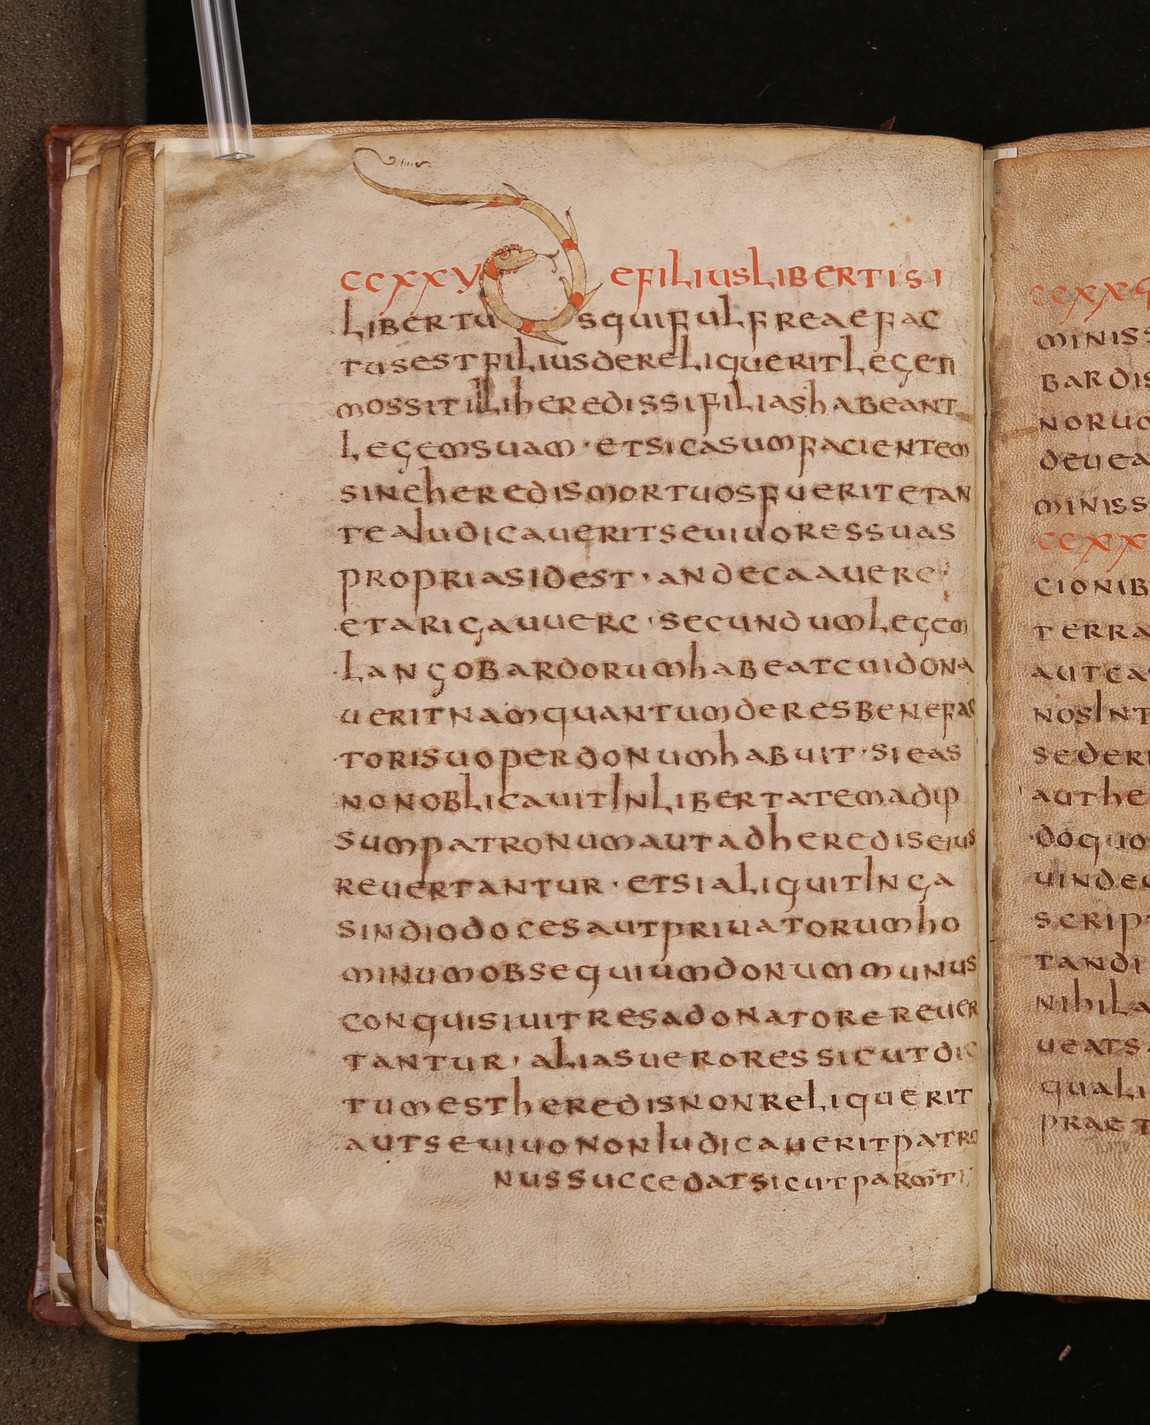 CCXXV DEFILIUSLIBERTISI
LIBERTUSQUIFULFREAEFAC
TUSESTFILIUSDERELIQUERITLEGETI
MOSSITILLIHEREDISSIFILIASHABEANT
LEGEMSUAM · ETSICASUMFACIENTEM
SINEHEREDISMORTUOSFUERITETAN
TEAIUDICAUERITSEUIUORESSUAS
PROPRIASIDEST · ANDECAAUERE
ETARIGAUUERC · SECUNDUMLEGEM
LANGOBARDORUMHABEATCUIDONA
UERITNAMQUANTUMDERESBENEFAC
TORISUOPERDONUMHABUIT · SIEAS
NONOBLICAUITINLIBERTATEMADIP
SUMPATRONUMAUTADHEREDISEIUS
REUERTANTUR · ETSIALIQUITINGA
SINDIODOCESAUTPRIUATORUMHO
MINUMOBSEQUIUMDONUMMUNUS
CONQUISIUITRESADONATOREREUER
TANTUR · ALIASUERORESSICUTDIC
TUMESTHEREDISNONRELIQUERIT
AUTSEUIUONONIUDICAUERITPATRO
NUSSUCCEDATSICUTPARMTI
MINISS
BARDIS
NORUO
DEUEA
MINISS
CCXX
CIONIB
TERRA
AUTEA
NOSINT
SEDERI
AUTHE
DOQUO
UINDEC
SCRIPT
TANDI
NIHILA
UEATS
QUALI
PRAET